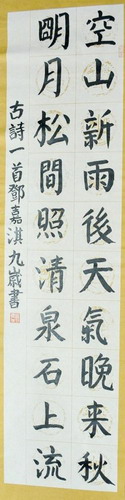 空山新雨後天氣晚来秋
明月松間照清泉石上流
古詩一首鄧嘉淇九歲書